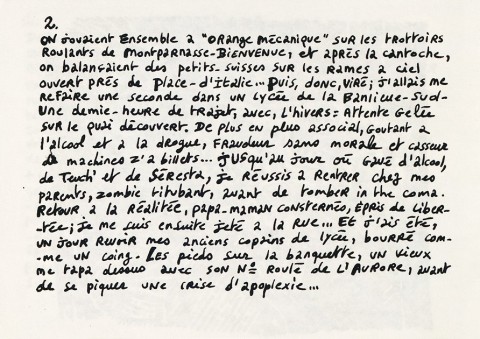 2.
ON jouaient Ensemble à "ORANGE MÉCANIQUE" SUR les trottoirs
ROULANTS de MONTPARNASSE-BIENVENUE, et APRÈS la cantoche,
on balançaient des petits-suisses SUR les RAMES à ciel
OUVERT PRÉS de Place-d'ITALIE... Puis, donc, VIRÉ; j'allais me
REFAIRE une seconde dans UN LYCÉE de la Banlieue-Sud-
Une demie-heure de trajet, avec, L'hivers: Attente Gelée
SUR le quai découvert. De plus en plus associal, Goutant à
l'alcool et à la drogue, FRAUDEUR sans morale et casseur
de machines z'à billets... jusqu'au jour où Gavé d'alcool,
de Teuch' et de SÉRESTA, je RÉUSSIS à RENTRER chez mes
PARENTS, zombie titubant, avant de tomber in the coma.
Retour à la RÉALITÉE, papa-maman CONSTERNÉS, ÉPRIS de liber-
-tée; je me suis ensuite jeté à la RUE... Et j'ais été,
UN JOUR REVOIR mes anciens copains de lycée, bourré com-
-me UN coing. Les pieds sur la banquette, UN vieux
me tapa dessus avec SON No ROULÉ de L'AURORE, avant
de se piquer UNE CRISE d'apoplexie...